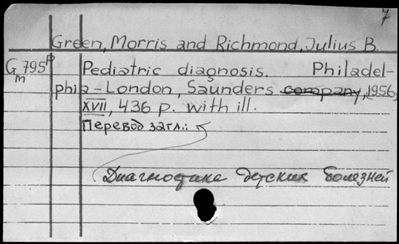 7
Green, Morris and Richmond, Julius B.
G 795 p Pediatric diagnosis. Philadel-
m phia - London, Saunders company, 1956,
XVII, 436 p. with ill.
Перевод загл.:
Диагностика детских болезней